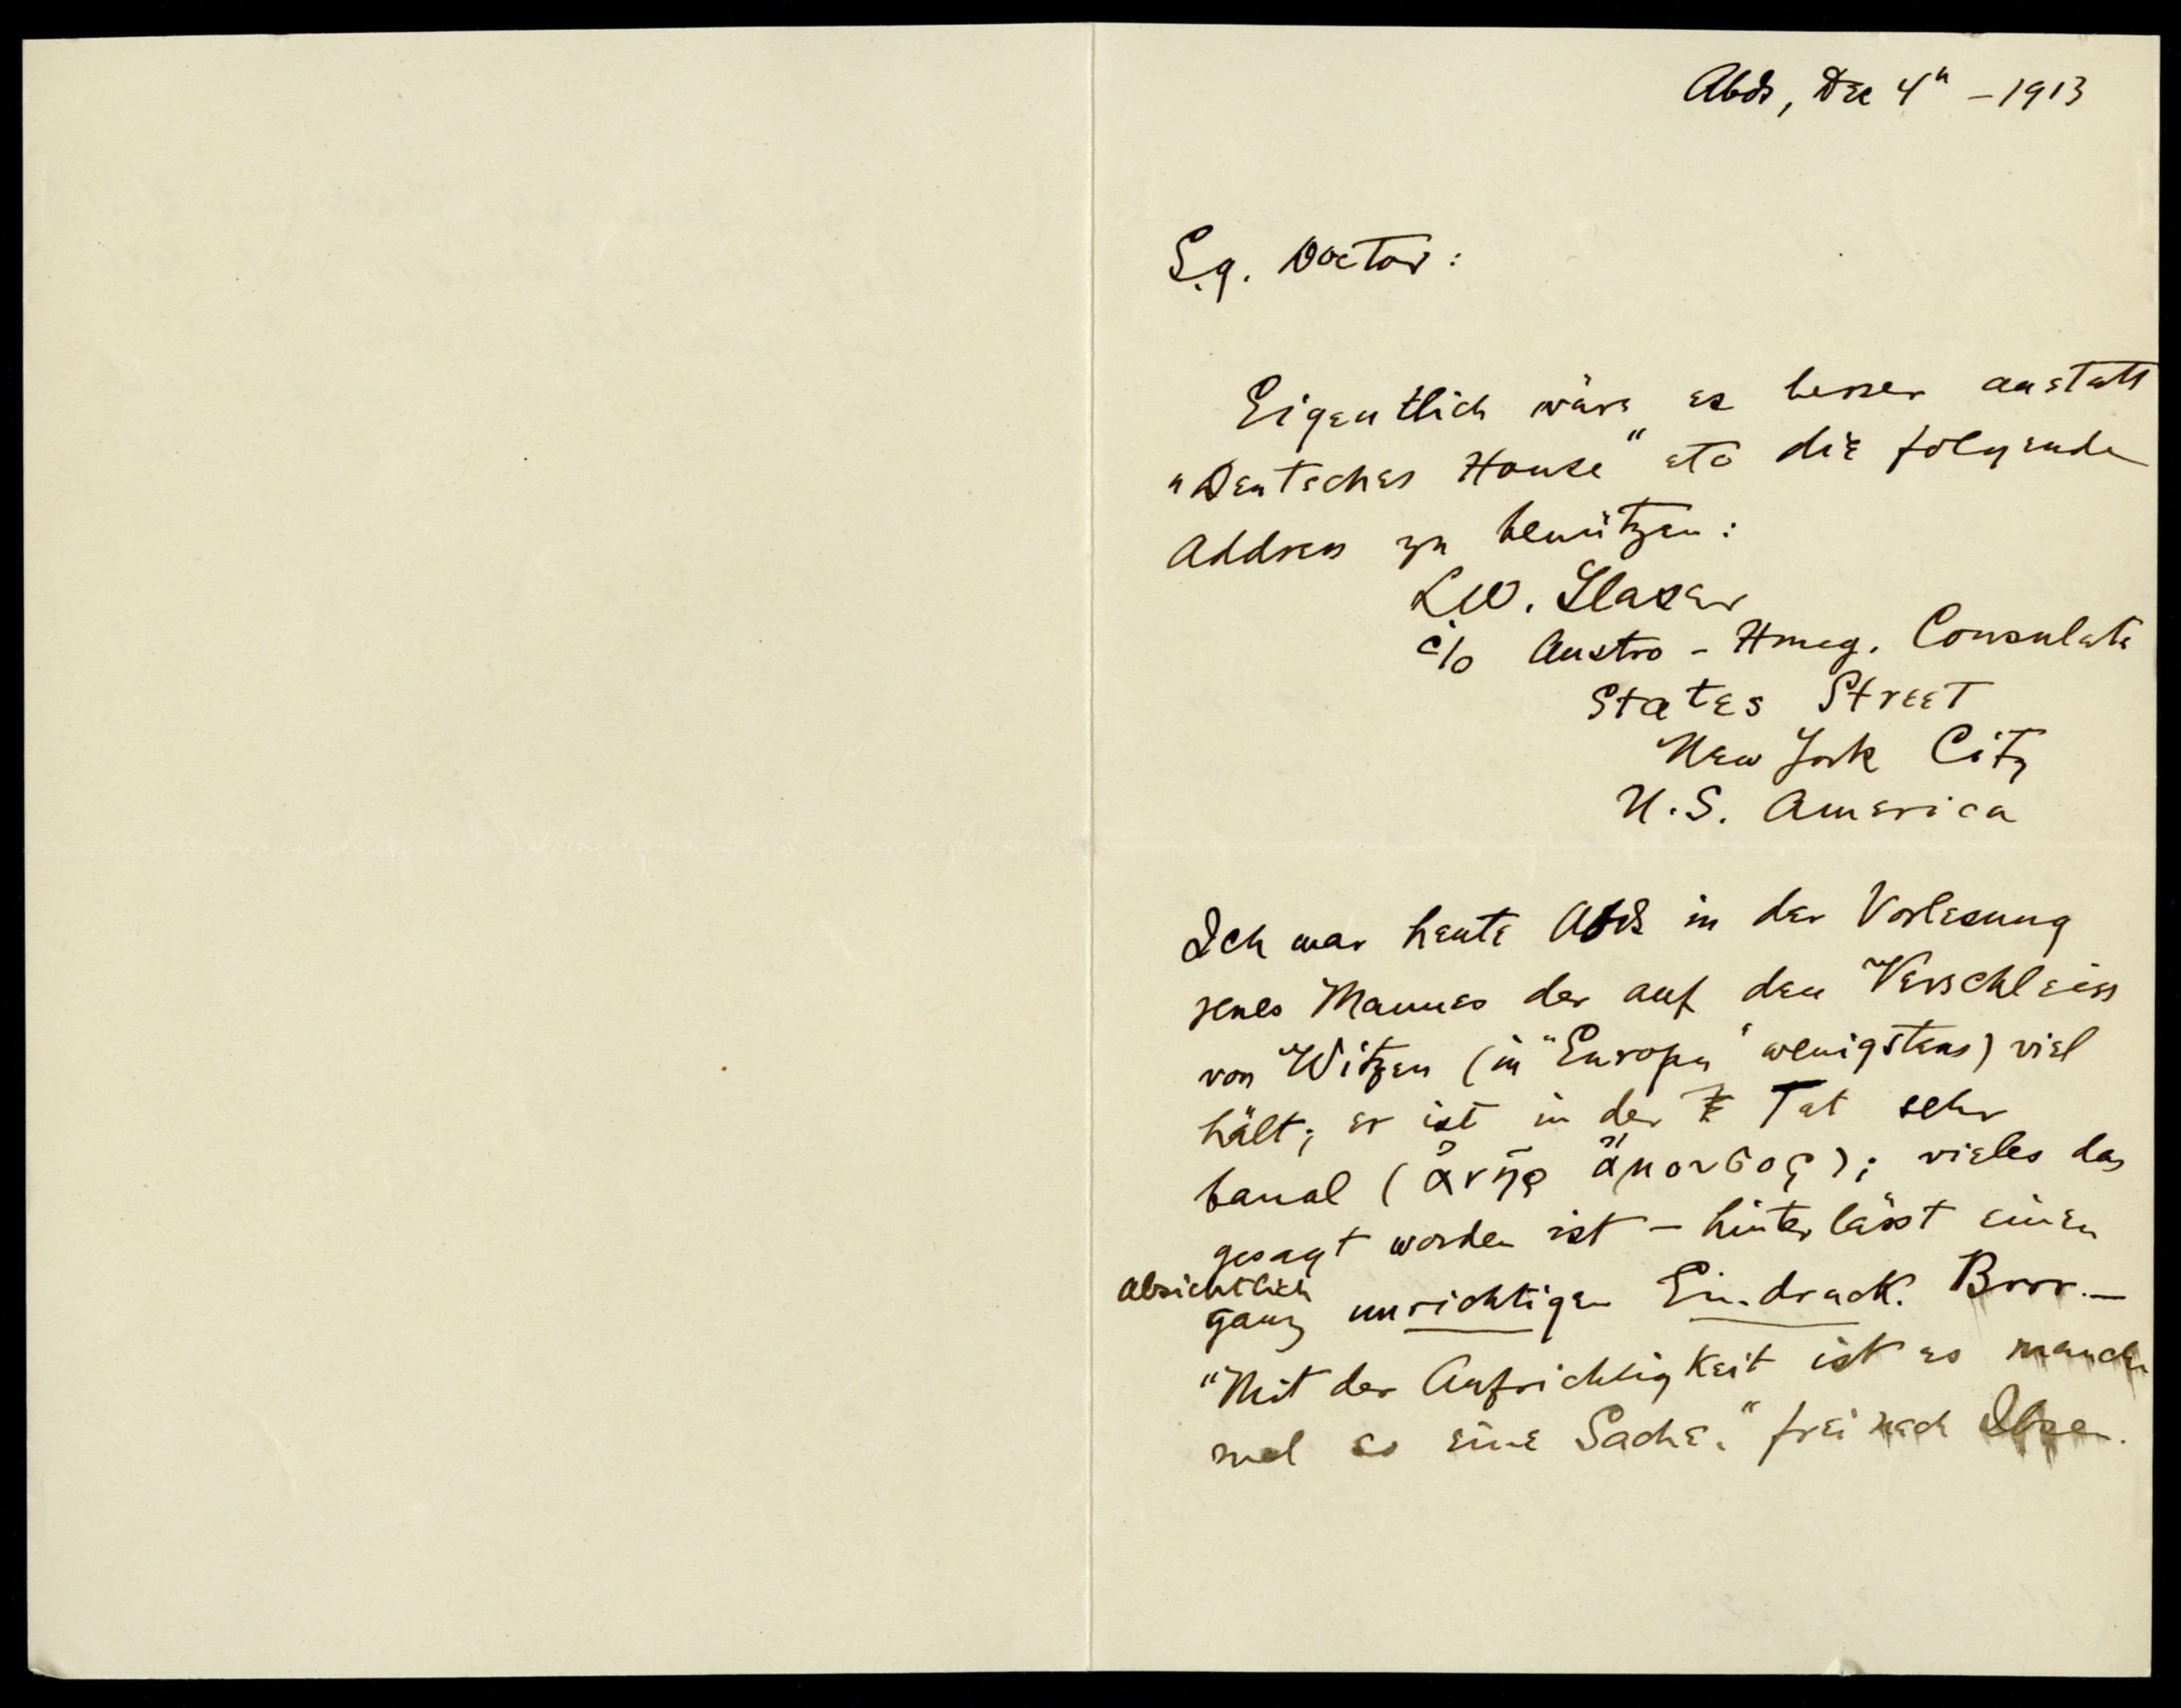 Abds, Dec 4th – 1913
S.g. Doctor:
Eigentlich wäre es besser anstatt
"Deutsches House" etc die folgende
Address zu benützen:
L.W. Glaser
c/o Austro - Hung. Consulate
States Street
New York City
U.S. America
Ich war heute Abds in der Vorlesung
jenes Mannes der auf den Verschleiss
von Witzen (in "Europa" wenigstens) viel
hält; er ist in der Tat sehr
banal (ἀνὴρ ἄμουσος); vieles das
gesagt worden ist – hinterlässt einen
absichtlich
ganz unrichtigen Eindruck. Brrr. –
"Mit der Aufrichtigkeit ist es manch
mal so eine Sache." frei nach Ibsen.